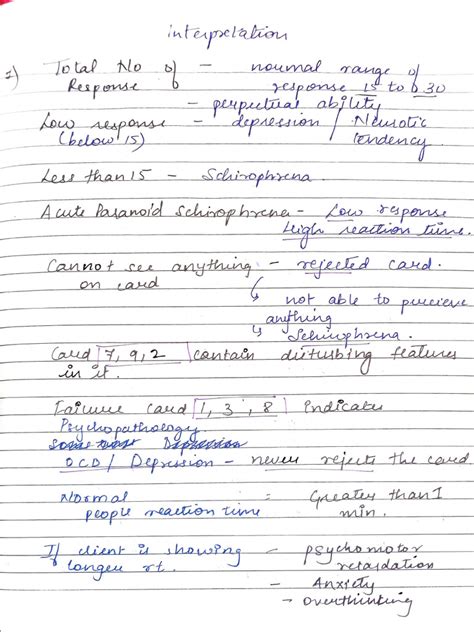 interpretation
1) Total No of - noumal range of
Response response 15 to 30
- perpectual ability
Low response - depression / Neurotic
(below 15) tendency
Less than 15 - Schizophrena.
Acute Paranoid Schizophrena - Low response
High reaction time.
Cannot see anything - rejected card.
on card
↳ not able to percieve
anything
↳ Schizophrena.
Card 7, 9, 2 contain disturbing features
in it.
Failure card 1, 3, 8 Indicates
Psychopathology
OCD / Depression - never rejects the card
Normal = Greater than 1
people reaction time min.
If client is showing - psychomotor
longer rt. retardation
- Anxiety
- overthinking